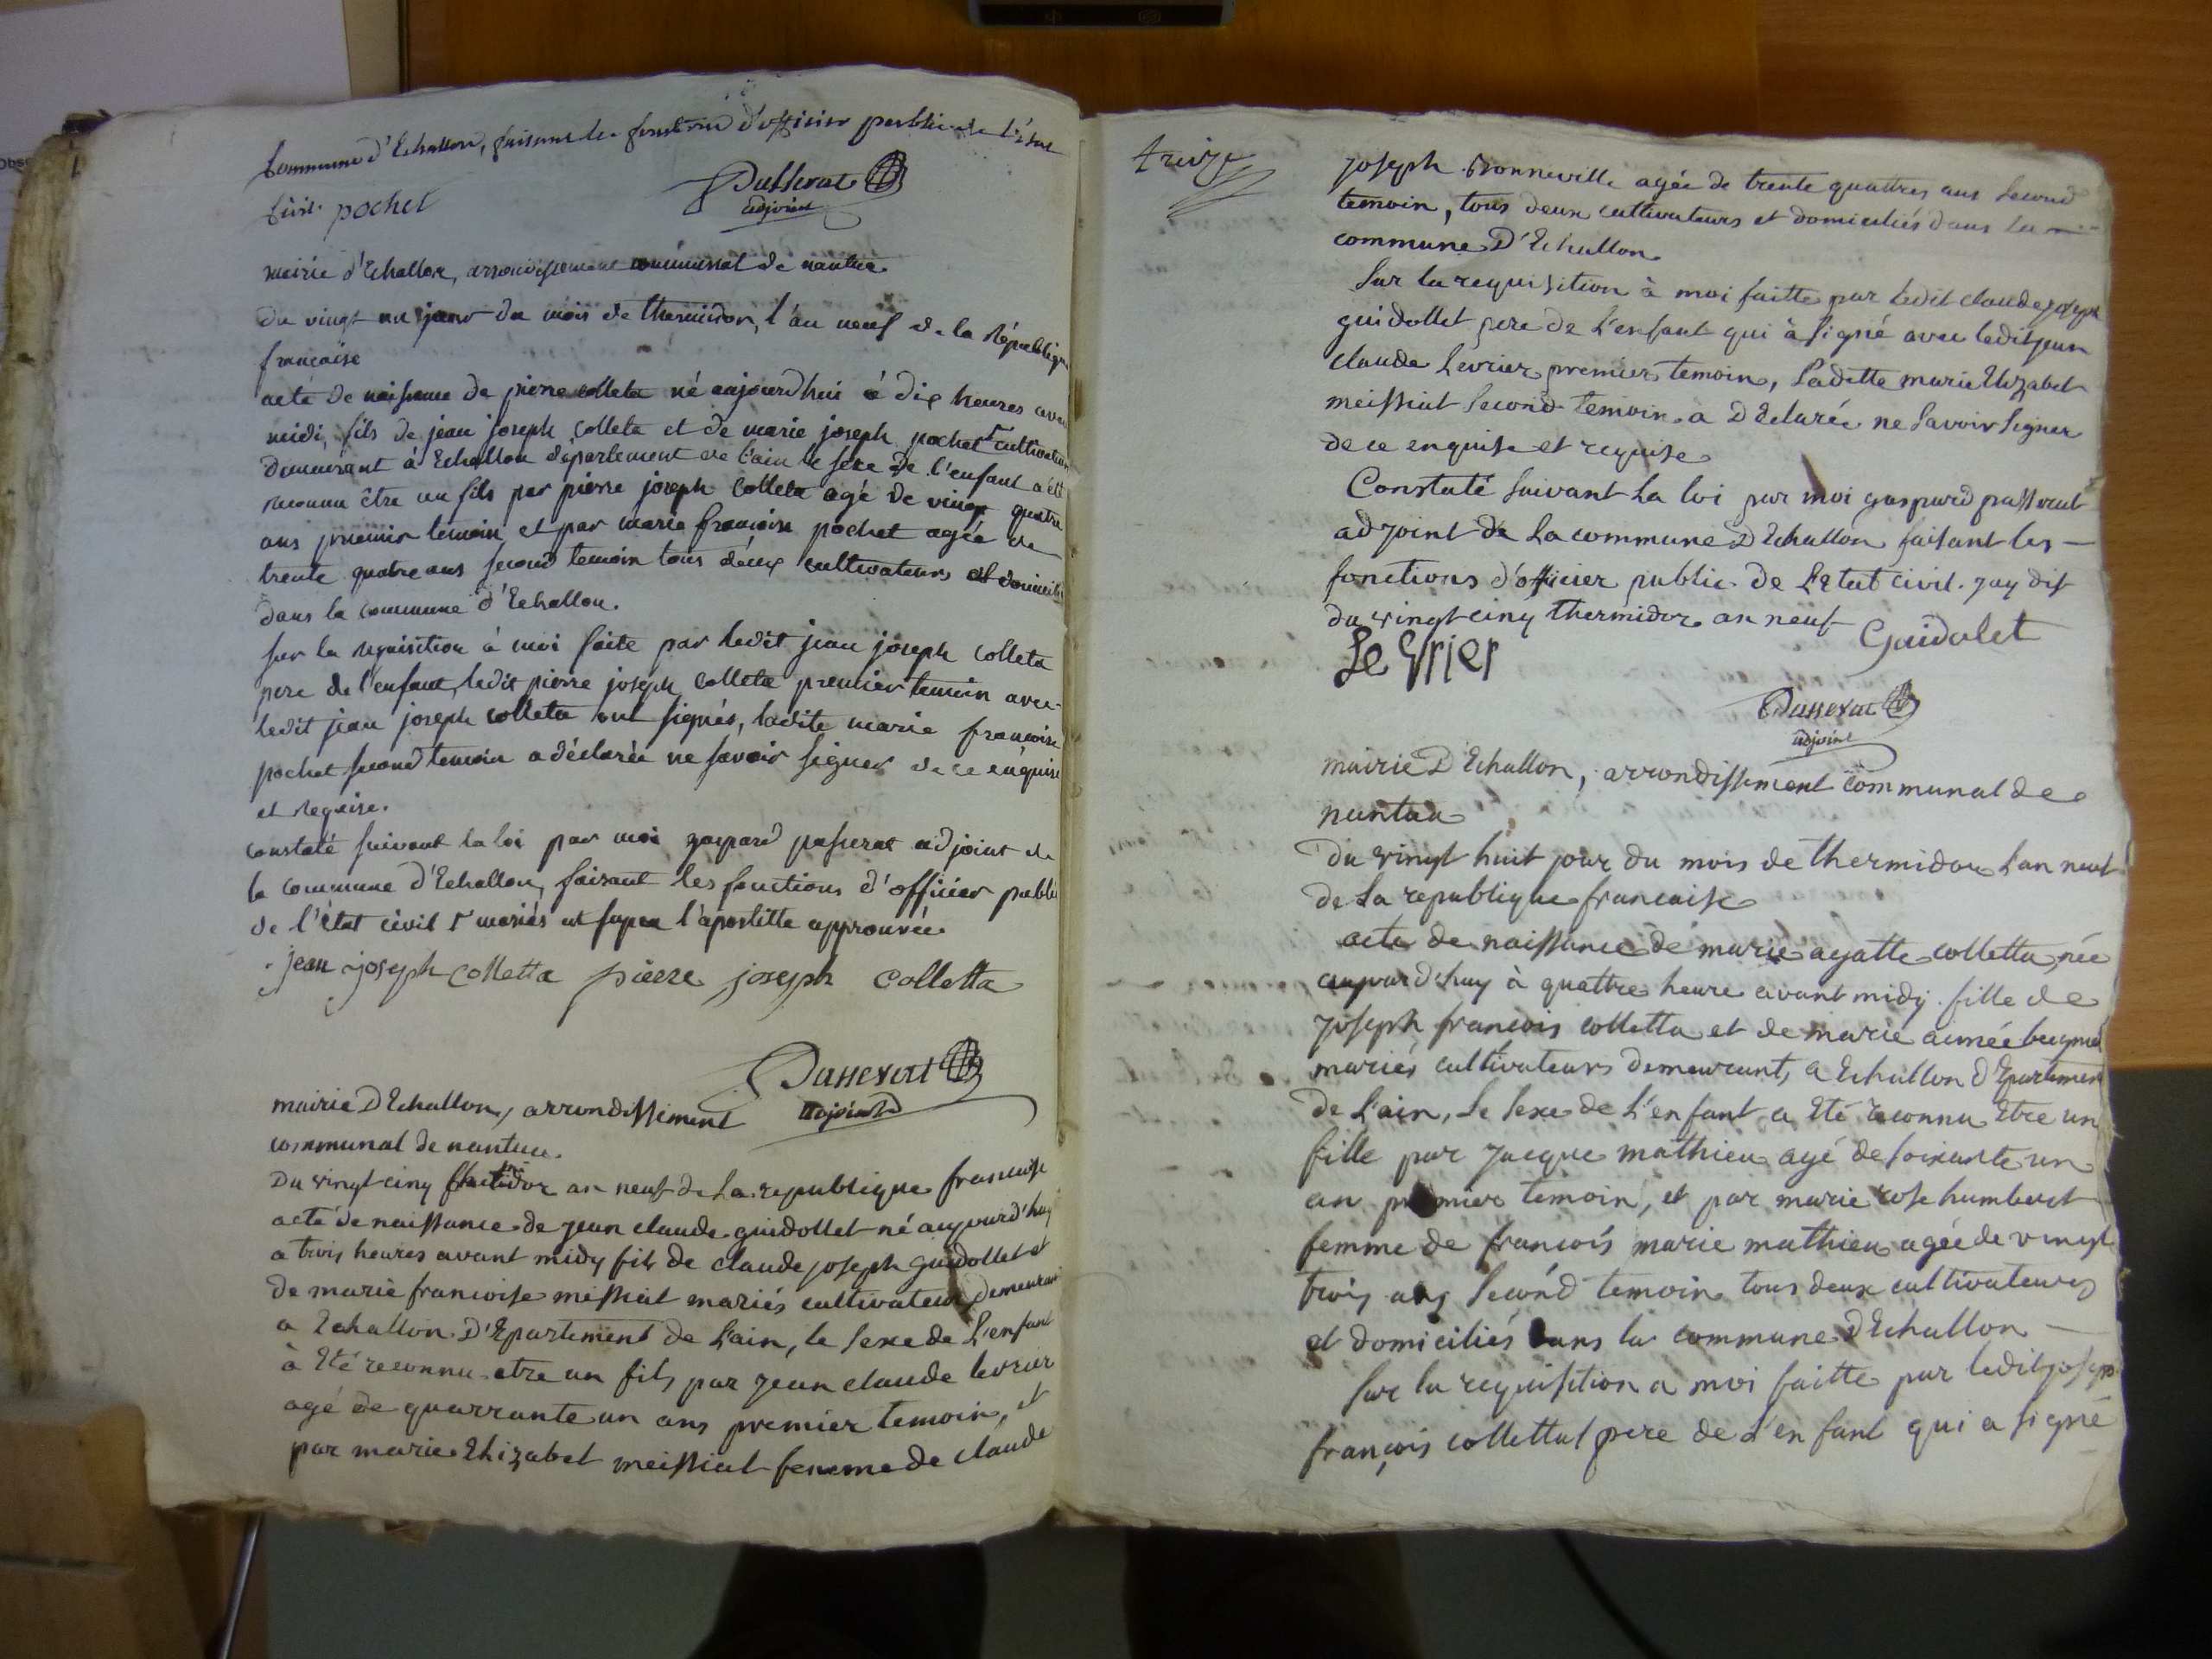 Commune d'Echallon, faisant les fonctions d'officier public de l'état
Civil. pochet
Passerat
adjoint
mairie d'Echallon, arrondissement communal de nantua
du vingt un jour du mois de thermidor, l'an neuf de la République
française
acte de naissance de pierre colleta né aujourdhui à dix heures avant
midi, fils de jean joseph colleta et de marie joseph pochet cultivateurs
demeurant à Echallon département de l'ain le sexe de l'enfant a été
reconnu être un fils par pierre joseph Colleta agé de vingt quatre
ans premier temoin et par marie françoise pochet agée de
trente quatre ans second temoin tous deux cultivateurs et domiciliés
dans la commune d'Echallon.
sur la requisition à moi faite par ledit jean joseph Colleta
pere de l'enfant, ledit pierre joseph Colleta premier temoin avec
ledit jean joseph Colleta ont signés, ladite marie françoise
pochet second temoin a déclarée ne savoir signer de ce enquise
et requise.
constaté suivant la loi par moi gaspard passerat adjoint de
la commune d'Echallon, faisant les fonctions d'officier public
de l'état civil mariés ut supra l'apostille approuvée
jean joseph colletta pierre joseph Colletta
Passerat
adjoint
mairie D Echallon, arrondissement
communal de nantua.
Du vingt cinq an neuf de La republique francoise
acte de naissance de jean claude guidollet né aujourd'huy
a trois heures avant midy fils de claude joseph guidollet et
de marie francoise messiat mariés cultivateurs demeurant
a Echallon D'Epartement de L'ain, le sexe de L'enfant
à Eté reconnu etre un fils par jean claude levrier
agé de quarrante un ans premier temoin, et
par marie Elizabet meissiat femme de claude
treize
joseph Bonneville agée de trente quattres ans second
temoin, tous deux cultivateurs et domiciliés dans La
commune D'Echallon
Sur la requisition à moi faitte par Ledit claude joseph
guidollet pere de L'enfant qui à signé avec Ledit jean
claude Levrier premier temoin, Laditte marie Elizabet
meissiat second temoin a Déclarée ne Savoir Signer
de ce enquise et requise
Constaté suivant La loi par moi gaspard passerat
adjoint de La commune D Echallon faisant les
fonctions d'officier public de L'Etat civil. jay dit
du vingt cinq thermidor an neuf
Guidolet
Le Vrier
Passerat
adjoint
mairie D Echallon, arrondissement communal de
nantua
Du vingt huit jour du mois de thermidor Lan neuf
de La republique francaise
acte de naissance de marie agatte colletta née
aujourd'huy à quattre heure avant midy. fille de
joseph francois colletta et de marie aimée
mariés cultivateurs demeurants a Echallon D'Epartement
de L'ain, Le sexe de L'enfant a Eté reconnu Etre un
fille par jacque mathieu agé de soixante un
an premier temoin, et par marie rose humbert
femme de francois marie mathieu agée de vingt
trois ans second temoin tous deux cultivateurs
et domiciliés dans la commune D'Echallon
Sur la requisition a moi faitte par ledit joseph
françois collettat pere de L'enfant qui a signé